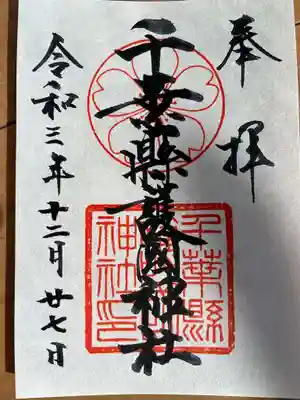 奉拝
千葉縣護國神社
令和三年十二月廿七日
千葉縣護國神社印